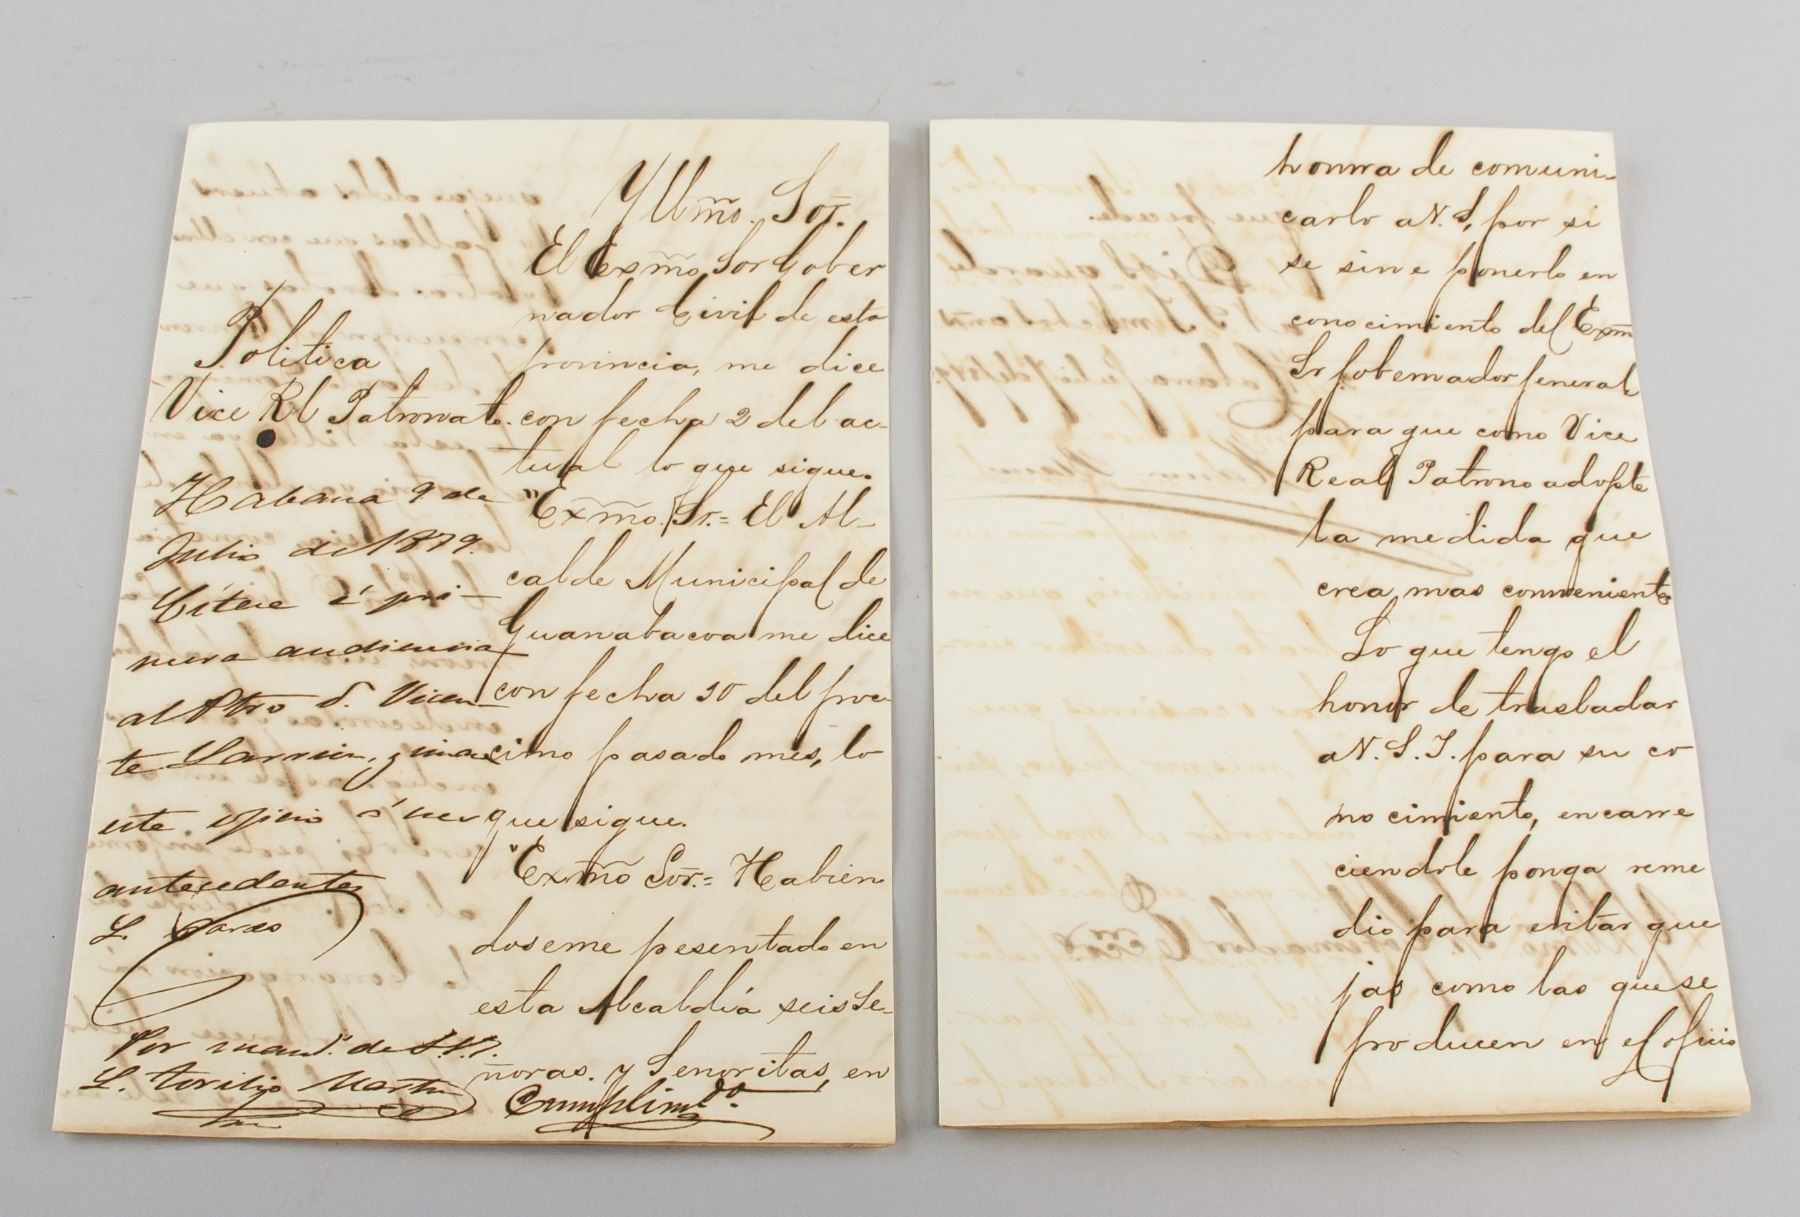 Yllmo. Sor.
El Exmo Sor Gober
nador Civil de esta
provincia, me dice
con fecha 2 del ac-
tual lo que sigue.
"Exmo. Sr.= El Al-
calde Municipal de
Guanabacoa me dice
con fecha 30 del proc-
simo pasado mes, lo
que sigue.
"Exmo Sor.= Habien
doseme pesentado en
esta Alcaldía seis Se-
ñoras. y Senoritas, en
Politica
Vice Rl Patronato.
Habana 9 de
Julio de 1879.
Cítese á pri-
mera audiencia
al Pbro D. Vicen-
te
este oficio á sus
antecedentes
Por mand.o de S.S.
Cumplim.do
honra de comuni-
carlo a V. S, por si
se sirve ponerlo en
conocimiento del Exmo
Sr Gobernador General
para que como Vice
Real Patrono adopte
la medida que
crea mas conveniente
Lo que tengo el
honor de trasladar
a V. S. I. para su co
nocimiento, encarre
ciendole ponga reme
dio para evitar que
jas como las que se
producen en el oficio